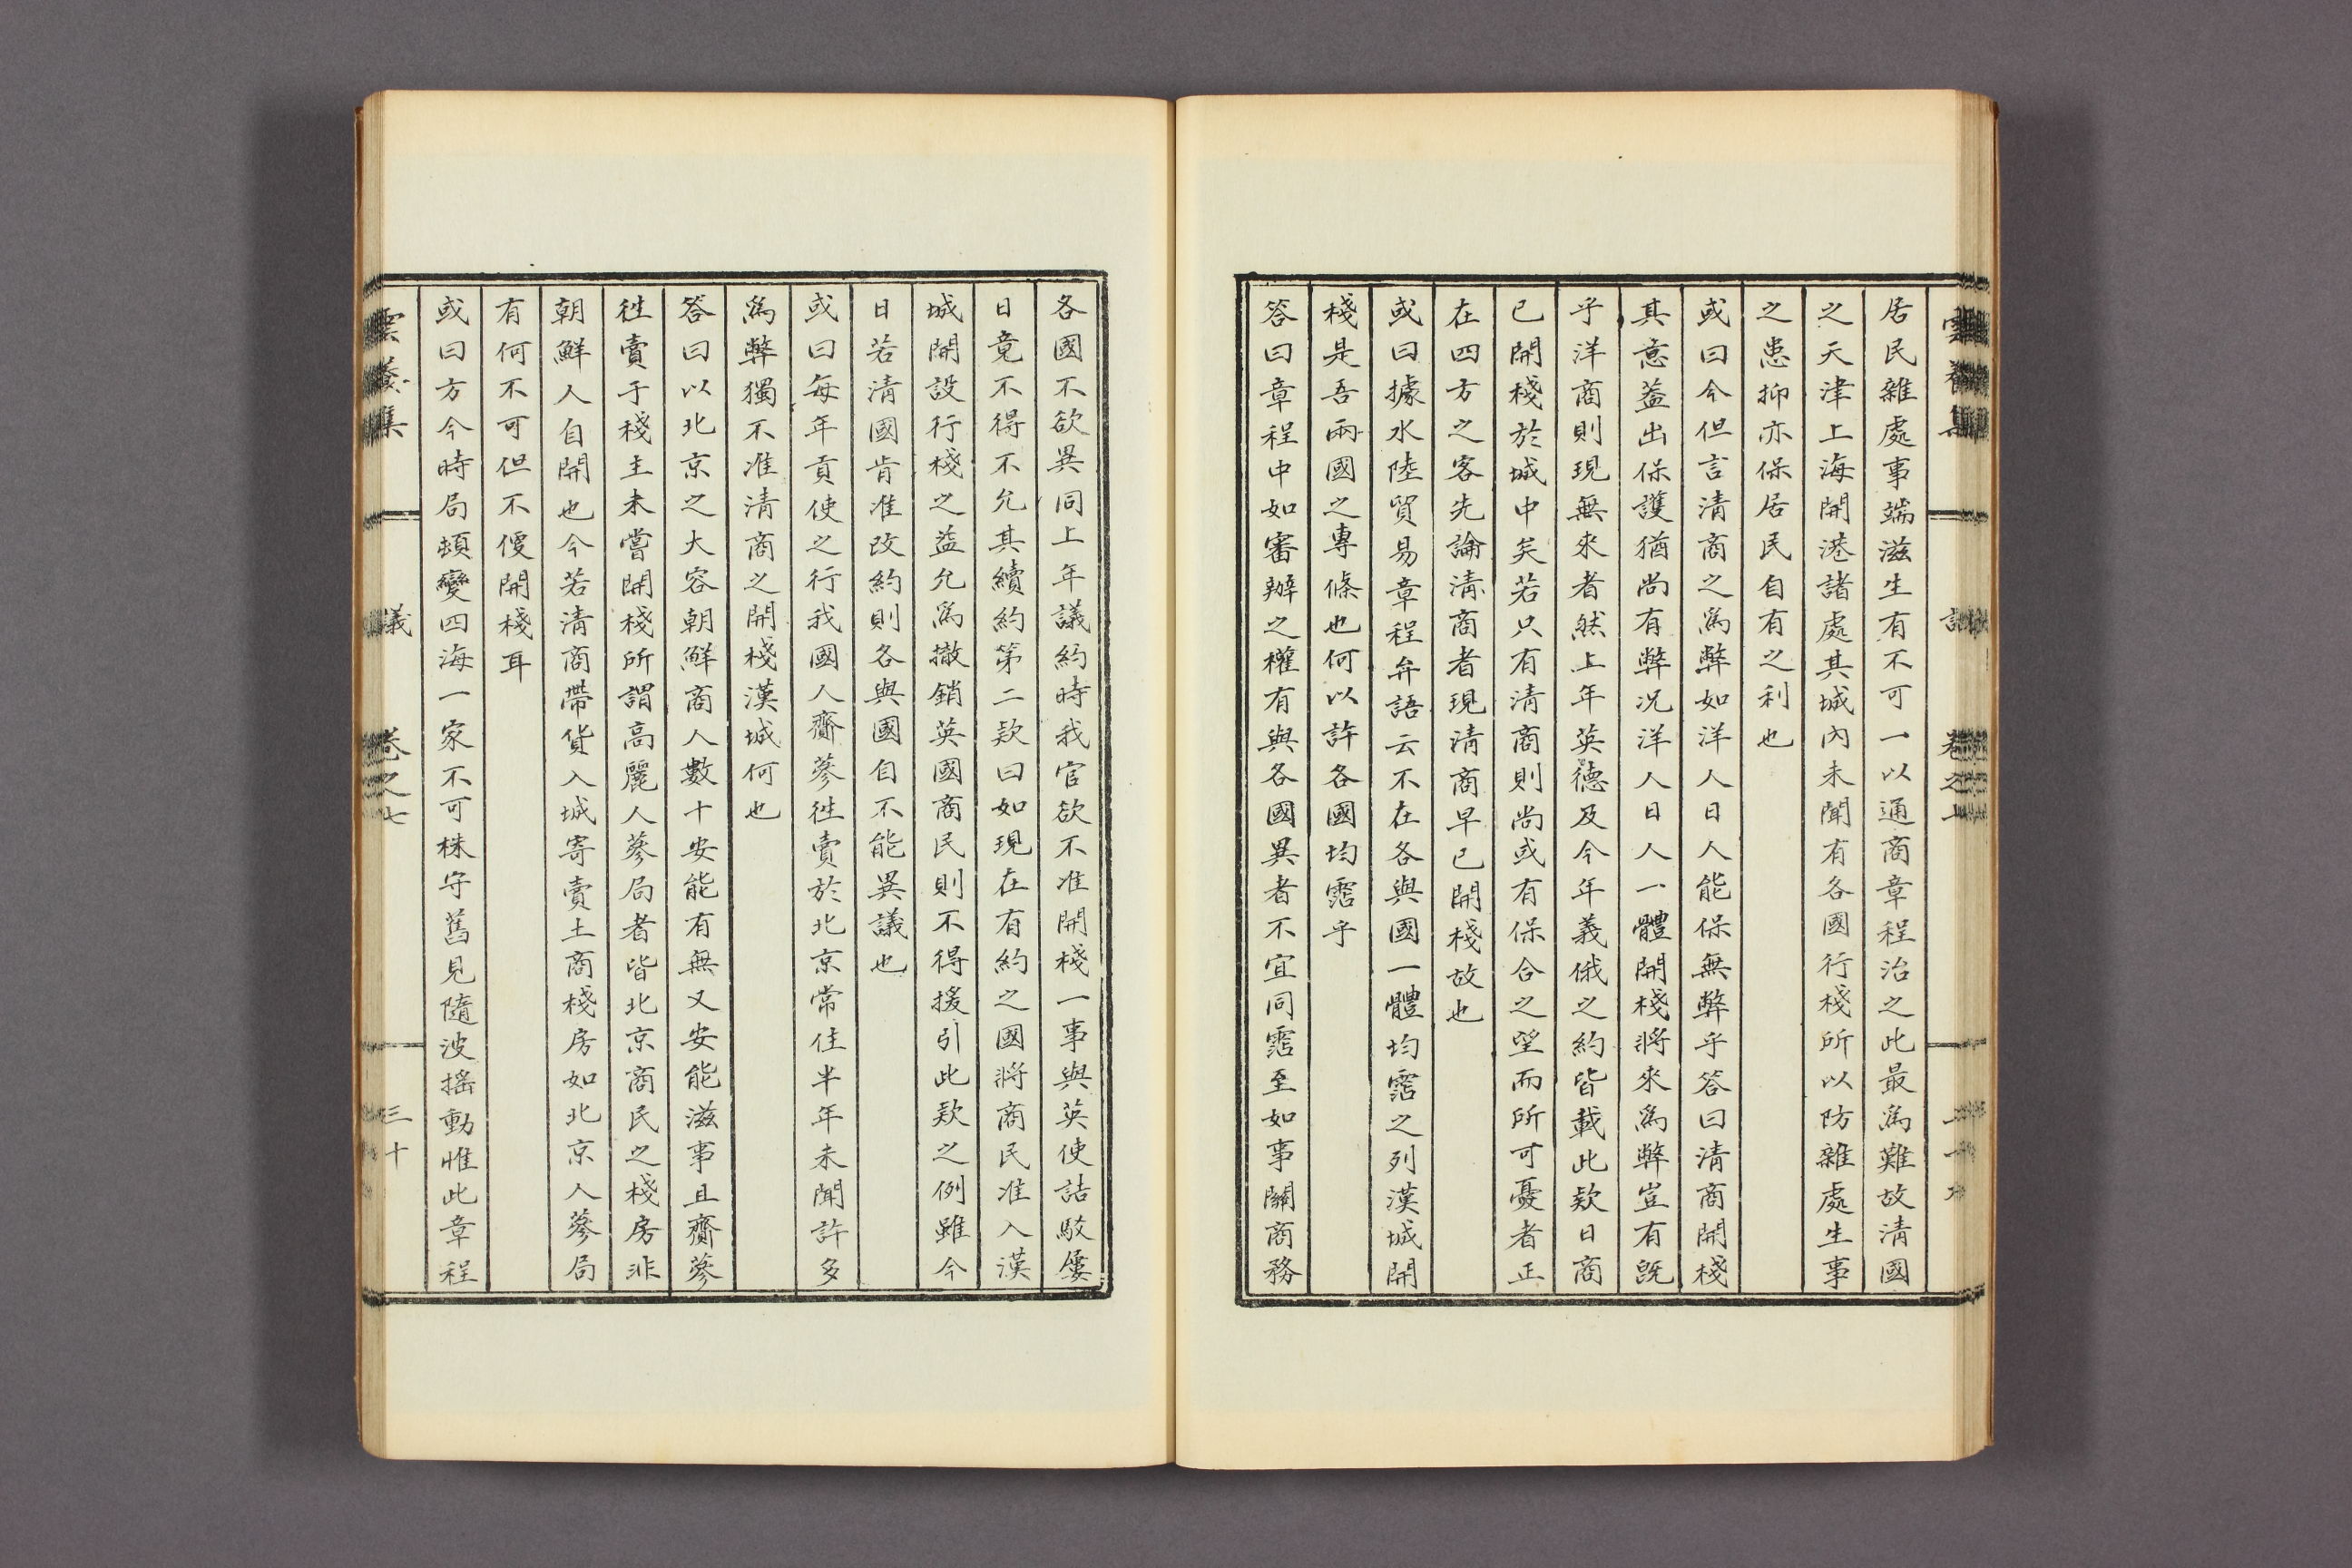 居民雜處事端滋生有不可一以通商章程治之此最爲難故清國
之天津上海開港諸處其城內未聞有各國行棧所以防雜處生事
之患抑亦保居民自有之利也
或曰今但言清商之爲弊如洋人日人能保無弊乎答曰清商開棧
其意蓋出保護猶尚有弊况洋人日人一體開棧將來爲弊豈有旣
乎洋商則現無來者然上年英德及今年義俄之約皆載此款日商
已開棧於城中矣若只有清商則尚或有保合之望而所可憂者正
在四方之客先論清商者現清商早已開棧故也
或曰據水陸貿易章程弁語云不在各與國一體均霑之列漢城開
棧是吾兩國之專條也何以許各國均霑乎
答曰章程中如審辦之權有與各國異者不宜同霑至如事關商務
各國不欲異同上年議約時我官欲不准開棧一事與英使詰駁屢
日竟不得不允其續約第二款曰如現在有約之國將商民准入漢
城開設行棧之益允爲撤銷英國商民則不得援引此款之例雖今
日若清國肯准改約則各與國自不能異議也
或曰每年貢使之行我國人齎蔘徃賣於北京常住半年未聞許多
爲弊獨不准清商之開棧漢城何也
答曰以北京之大容朝鮮商人數十安能有無又安能滋事且齎蔘
徃賣于棧主未嘗開棧所謂高麗人蔘局者皆北京商民之棧房非
朝鮮人自開也今若清商帶貨入城寄賣土商棧房如北京人蔘局
有何不可但不便開棧耳
或曰方今時局頓變四海一家不可株守舊見隨波搖動惟此章程
雲養集 議 卷之七 三十